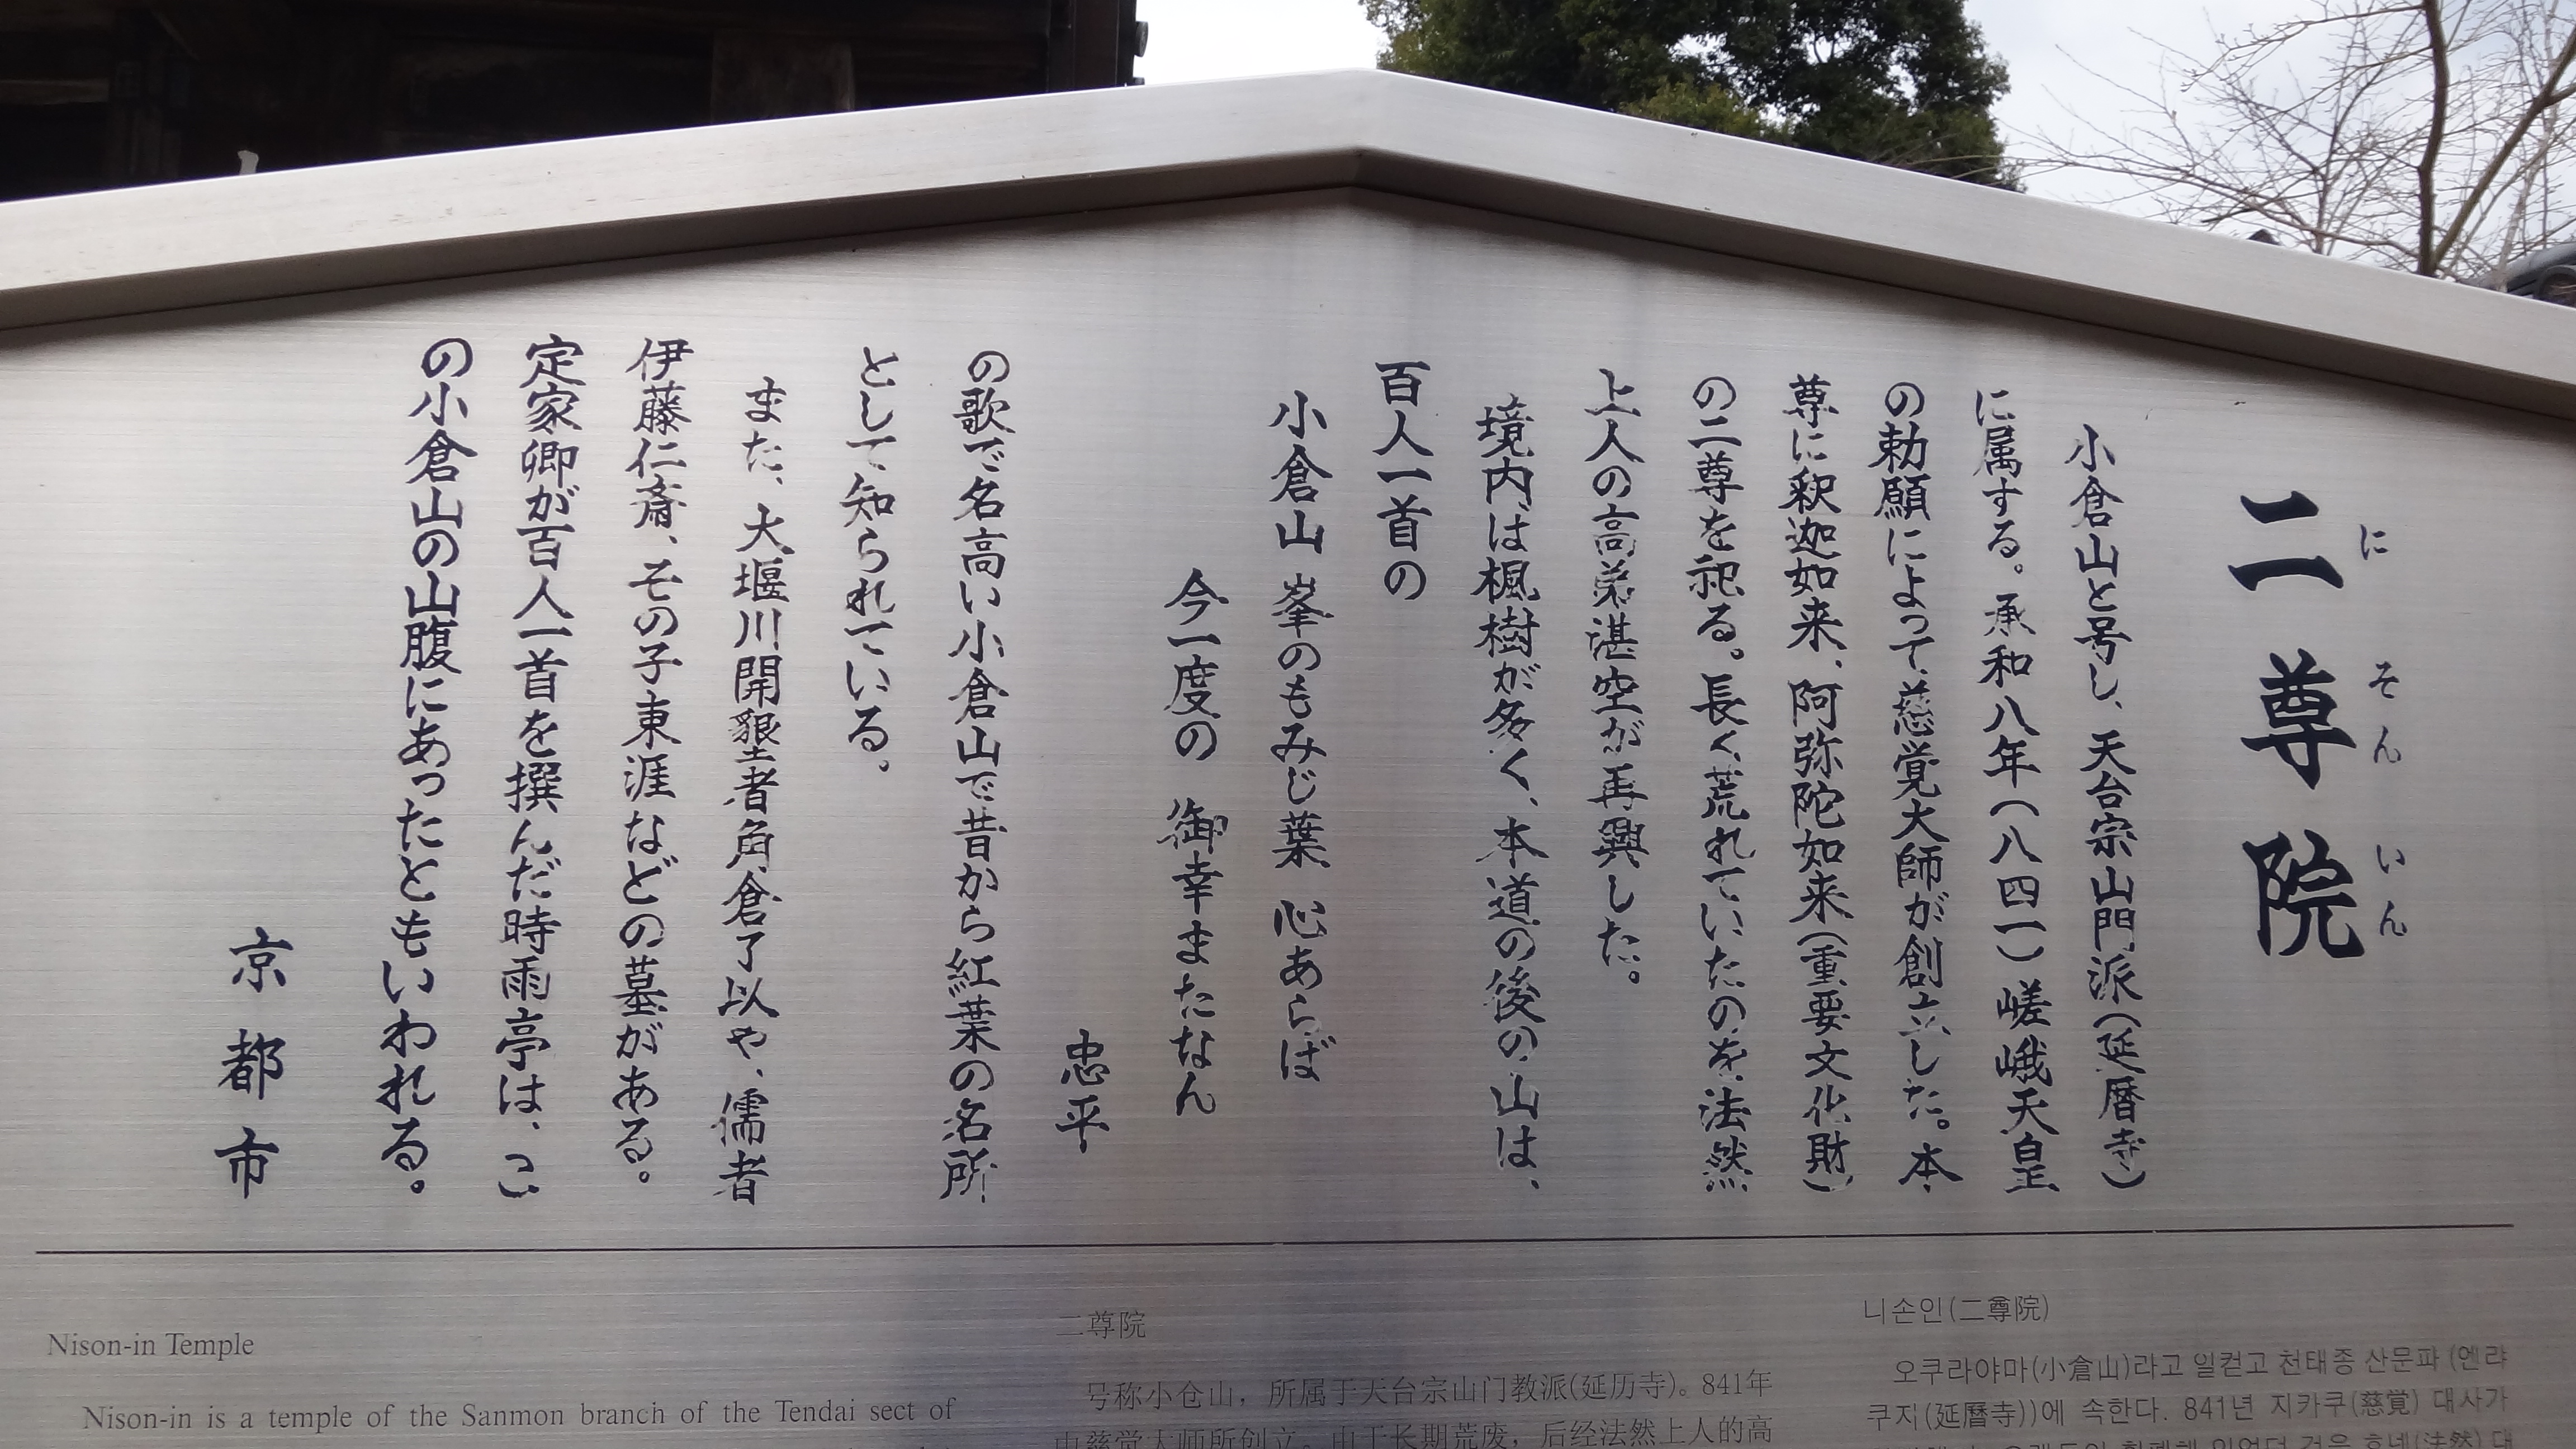 二尊院
にそんいん
小倉山と号し、天台宗山門派(延暦寺)
に属する。承和八年(八四一)嵯峨天皇
の勅願によって、慈覚大師が創立した。本
尊に釈迦如来、阿弥陀如来(重要文化財)
の二尊を祀る。長く荒れていたのを法然
上人の高弟湛空が再興した。
境内は楓樹が多く、本道の後の山は、
百人一首の
小倉山 峯のもみじ葉 心あらば
今一度の 御幸またなん
忠平
の歌で名高い小倉山で昔から紅葉の名所
として知られている。
また、大堰川開墾者角倉了以や、儒者
伊藤仁斎、その子東涯などの墓がある。
定家卿が百人一首を撰んだ時雨亭は、こ
の小倉山の山腹にあったともいわれる。
京都市
Nison-in Temple
Nison-in is a temple of the Sanmon branch of the Tendai sect of
二尊院
号称小仓山，所属于天台宗山门教派(延历寺)。841年
由慈觉大师所创立。由于长期荒废，后经法然上人的高
니손인(二尊院)
오쿠라야마(小倉山)라고 일컫고 천태종 산문파 (엔랴
쿠지(延曆寺))에 속한다. 841년 지카쿠(慈覺) 대사가